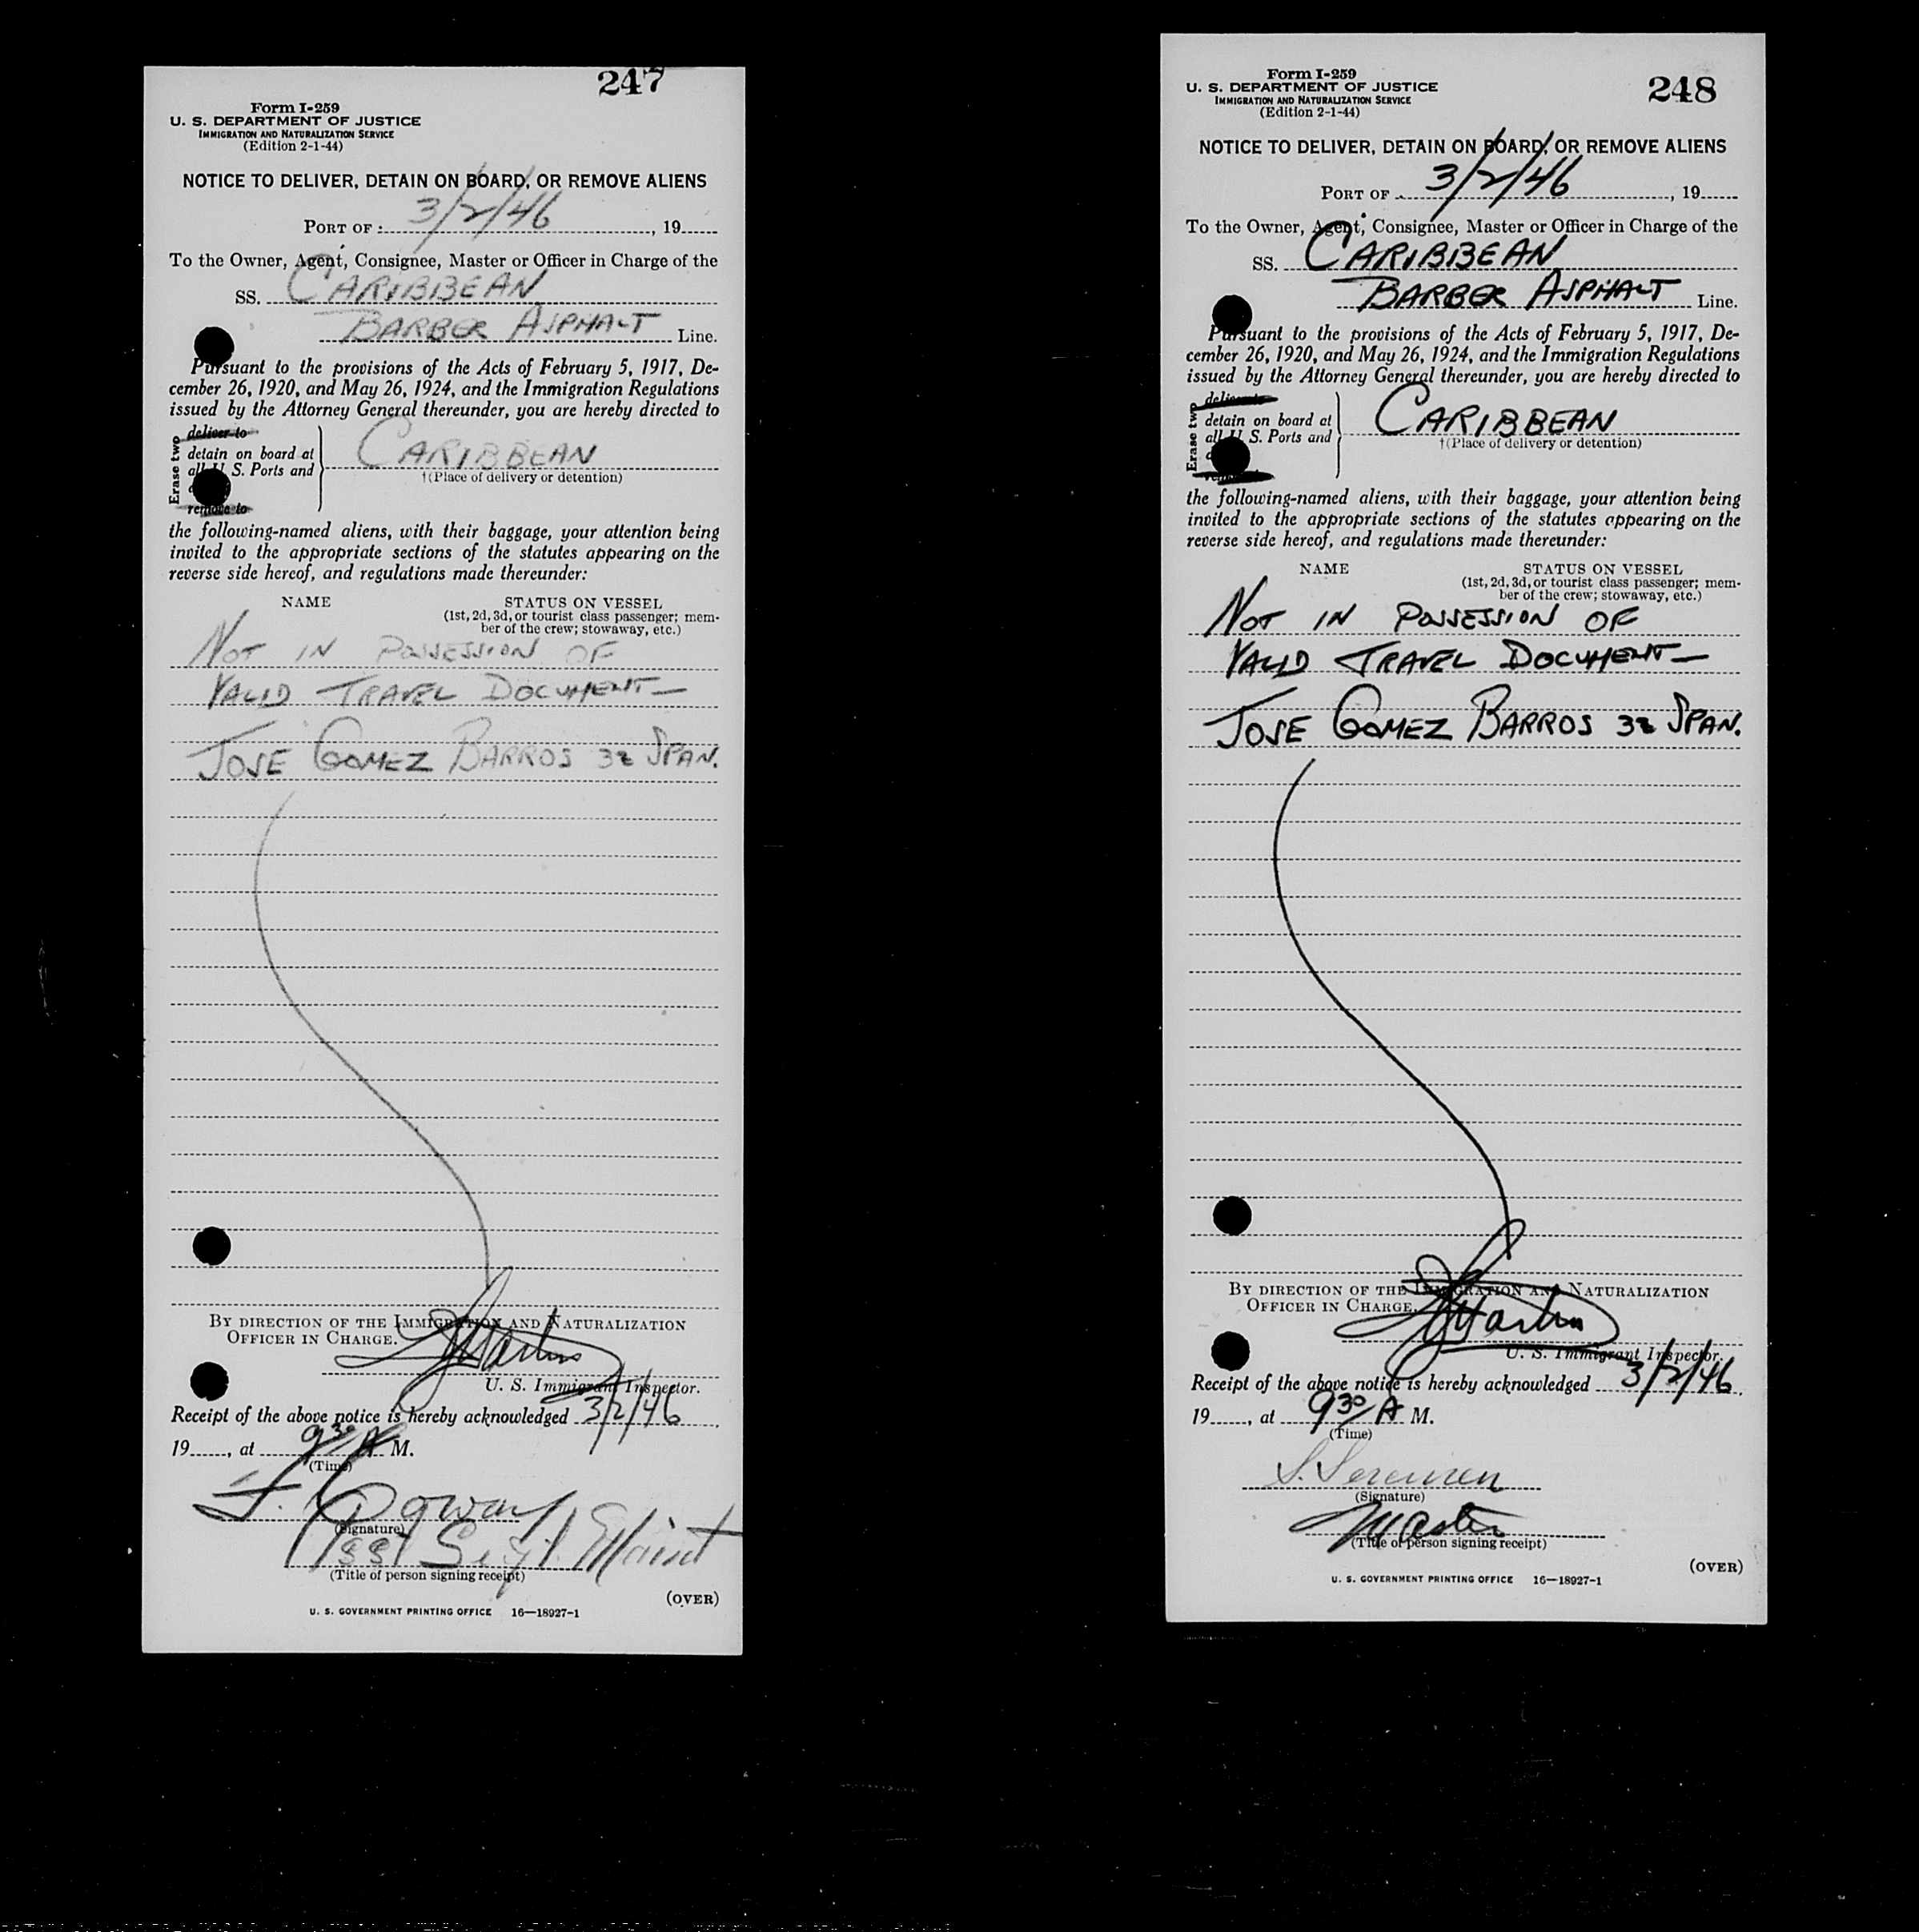 247
Form I-259
U. S. DEPARTMENT OF JUSTICE
IMMIGRATION AND NATURALIZATION SERVICE
(Edition 2-1-44)
NOTICE TO DELIVER, DETAIN ON BOARD, OR REMOVE ALIENS
PORT OF 3/2/46, 19
To the Owner, Agent, Consignee, Master or Officer in Charge of the
SS. CARIBBEAN
BARBER ASPHALT Line.
Pursuant to the provisions of the Acts of February 5, 1917, De-
cember 26, 1920, and May 26, 1924, and the Immigration Regulations
issued by the Attorney General thereunder, you are hereby directed to
Erase two
deliver to
detain on board at
all U. S. Ports and
remove to
CARIBBEAN
†(Place of delivery or detention)
the following-named aliens, with their baggage, your attention being
invited to the appropriate sections of the statutes appearing on the
reverse side hereof, and regulations made thereunder:
NAME STATUS ON VESSEL
(1st, 2d, 3d, or tourist class passenger; mem-
ber of the crew; stowaway, etc.)
NOT IN POSSESSION OF
VALID TRAVEL DOCUMENT—
JOSE GOMEZ BARROS 32 SPAN.
BY DIRECTION OF THE IMMIGRATION AND NATURALIZATION
OFFICER IN CHARGE.
Martin
U. S. Immigrant Inspector.
Receipt of the above notice is hereby acknowledged 3/2/46,
19, at 9 30/A M.
(Time)
(Signature)
Asst Supt Maint
(Title of person signing receipt)
(OVER)
U. S. GOVERNMENT PRINTING OFFICE 16—18927-1
248
Form I-259
U. S. DEPARTMENT OF JUSTICE
IMMIGRATION AND NATURALIZATION SERVICE
(Edition 2-1-44)
NOTICE TO DELIVER, DETAIN ON BOARD, OR REMOVE ALIENS
PORT OF 3/2/46, 19
To the Owner, Agent, Consignee, Master or Officer in Charge of the
SS. CARIBBEAN
BARBER ASPHALT Line.
Pursuant to the provisions of the Acts of February 5, 1917, De-
cember 26, 1920, and May 26, 1924, and the Immigration Regulations
issued by the Attorney General thereunder, you are hereby directed to
Erase two
deliver to
detain on board at
all U. S. Ports and
remove to
CARIBBEAN
†(Place of delivery or detention)
the following-named aliens, with their baggage, your attention being
invited to the appropriate sections of the statutes appearing on the
reverse side hereof, and regulations made thereunder:
NAME STATUS ON VESSEL
(1st, 2d, 3d, or tourist class passenger; mem-
ber of the crew; stowaway, etc.)
NOT IN POSSESSION OF
VALID TRAVEL DOCUMENT—
JOSE GOMEZ BARROS 32 SPAN.
BY DIRECTION OF THE IMMIGRATION AND NATURALIZATION
OFFICER IN CHARGE.
Martin
U. S. Immigrant Inspector.
Receipt of the above notice is hereby acknowledged 3/2/46,
19, at 9 30/A M.
(Time)
S. Sorensen
(Signature)
Master
(Title of person signing receipt)
(OVER)
U. S. GOVERNMENT PRINTING OFFICE 16—18927-1